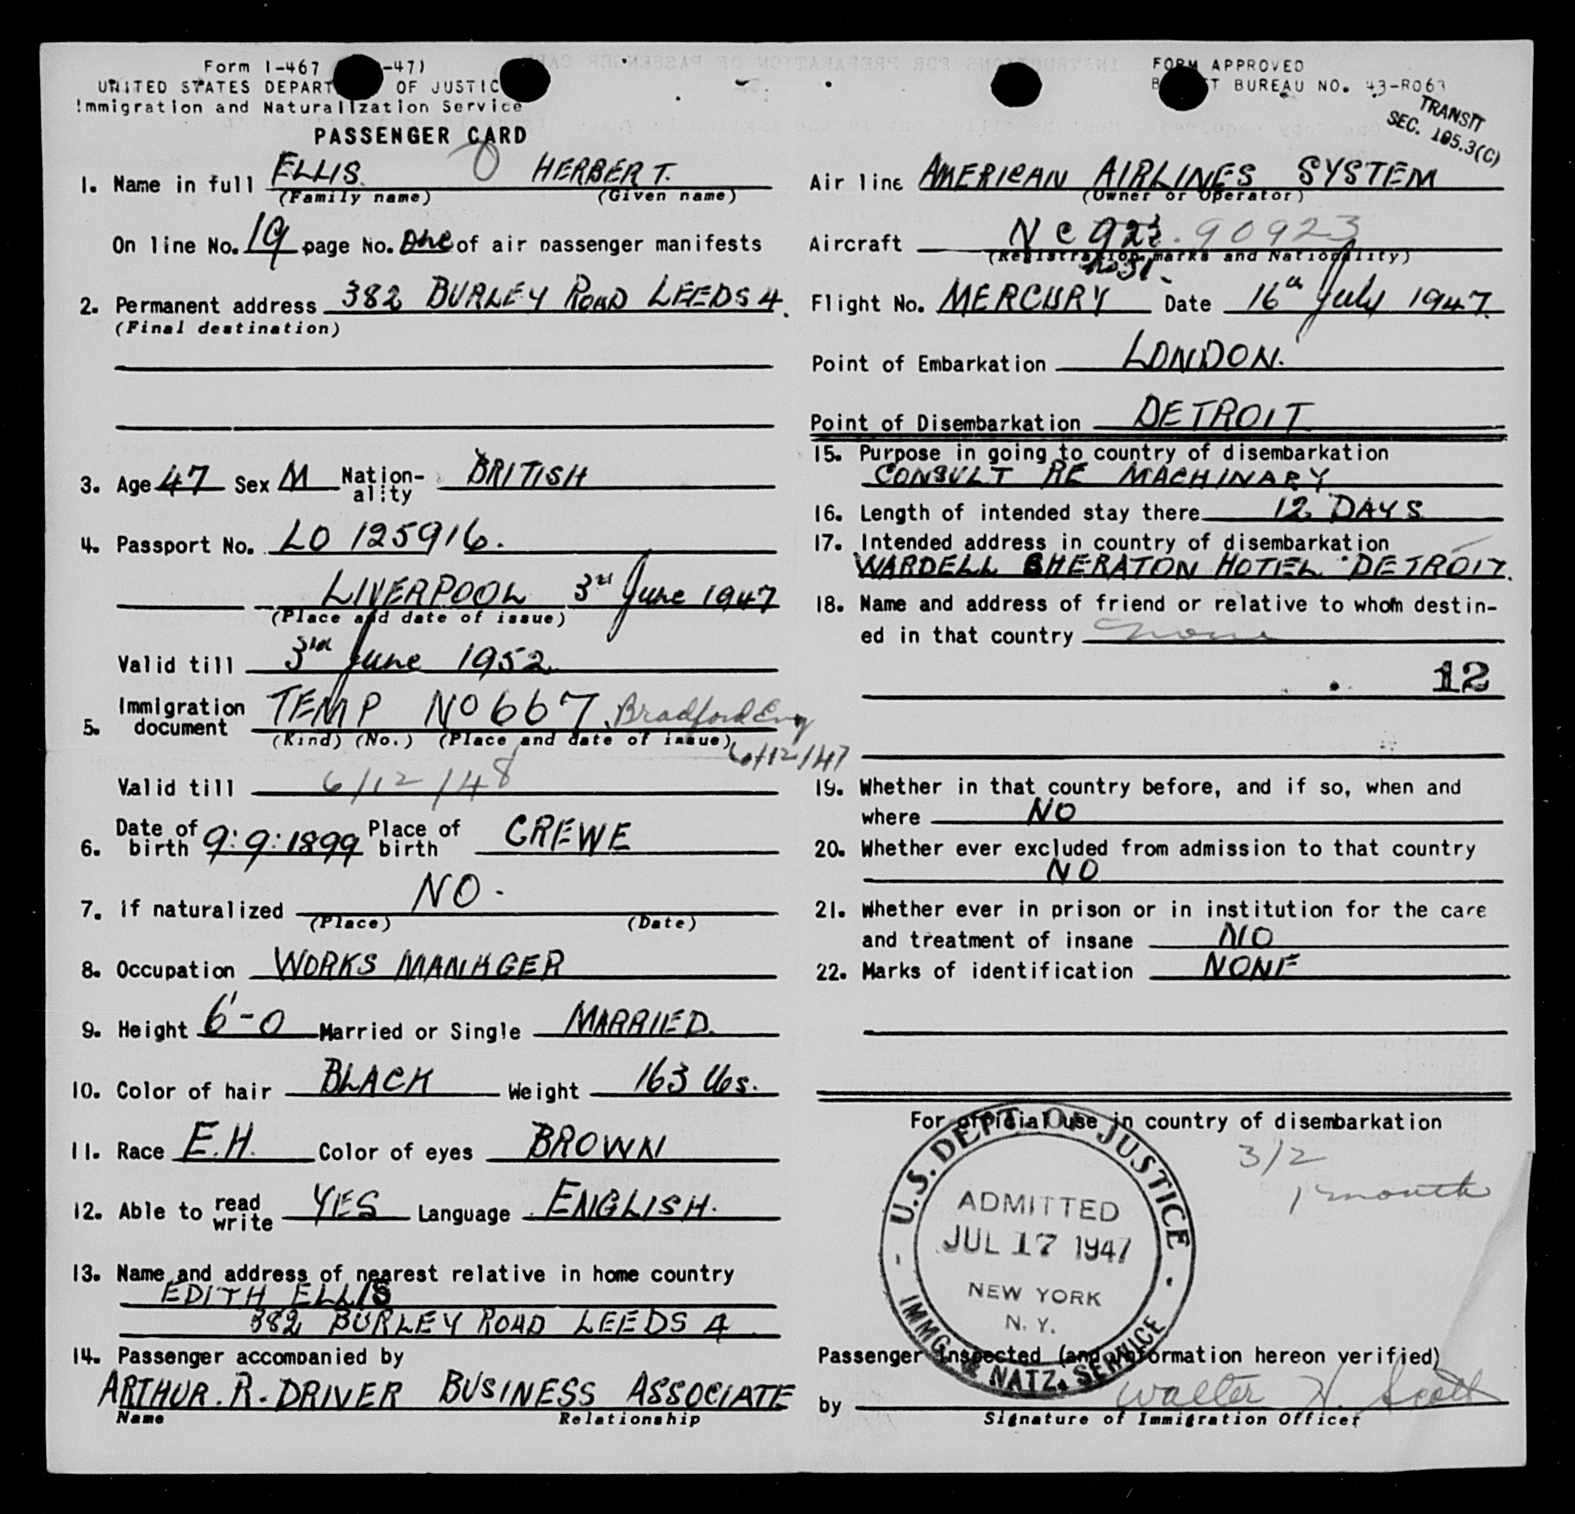 Form I-467 -47)
UNITED STATES DEPART OF JUSTIC
Immigration and Naturalization Service
PASSENGER CARD
1. Name in full ELLIS HERBERT.
(Family name) (Given name)
On line No. 19 page No. One of air passenger manifests
2. Permanent address 382 BURLEY ROAD LEEDS 4.
(Final destination)
3. Age 47 Sex M Nation-ality BRITISH
4. Passport No. LO 125916.
LIVERPOOL 3rd June 1947
(Place and date of issue)
Valid till 3rd June 1952
5. Immigration document TEMP NO 667. Bradford Eng
(Kind) (No.) (Place and date of issue) 6/12/47
Valid till 6/12/48
6. Date of birth 9:9:1899 Place of birth CREWE
7. If naturalized NO.
(Place) (Date)
8. Occupation WORKS MANAGER
9. Height 6'-0 Married or Single MARRIED.
10. Color of hair BLACK Weight 163 lbs.
11. Race E.H. Color of eyes BROWN
12. Able to read write YES Language ENGLISH.
13. Name and address of nearest relative in home country
EDITH ELLIS
382 BURLEY ROAD LEEDS 4
14. Passenger accompanied by
ARTHUR. R. DRIVER BUSINESS ASSOCIATE
Name Relationship
FORM APPROVED
B T BUREAU NO. 43-R063
TRANSIT
SEC. 105.3(C)
Air line AMERICAN AIRLINES SYSTEM
(Owner or Operator)
Aircraft NC 923. 90923
(Registration marks and Nationality)
Flight No. MERCURY Date 16th July 1947.
Point of Embarkation LONDON.
Point of Disembarkation DETROIT
15. Purpose in going to country of disembarkation
CONSULT RE MACHINARY
16. Length of intended stay there 12 DAYS
17. Intended address in country of disembarkation
WARDELL SHERATON HOTEL DETROIT.
18. Name and address of friend or relative to whom destin-
ed in that country none
12
19. Whether in that country before, and if so, when and
where NO
20. Whether ever excluded from admission to that country
NO
21. Whether ever in prison or in institution for the care
and treatment of insane NO
22. Marks of identification NONE
For official use in country of disembarkation
3/2
1 month
U.S. DEPT. OF JUSTICE
ADMITTED
JUL 17 1947
NEW YORK
N. Y.
IMMG. & NATZ. SERVICE
Passenger inspected (and information hereon verified)
by Walter H. Scott
Signature of Immigration Officer